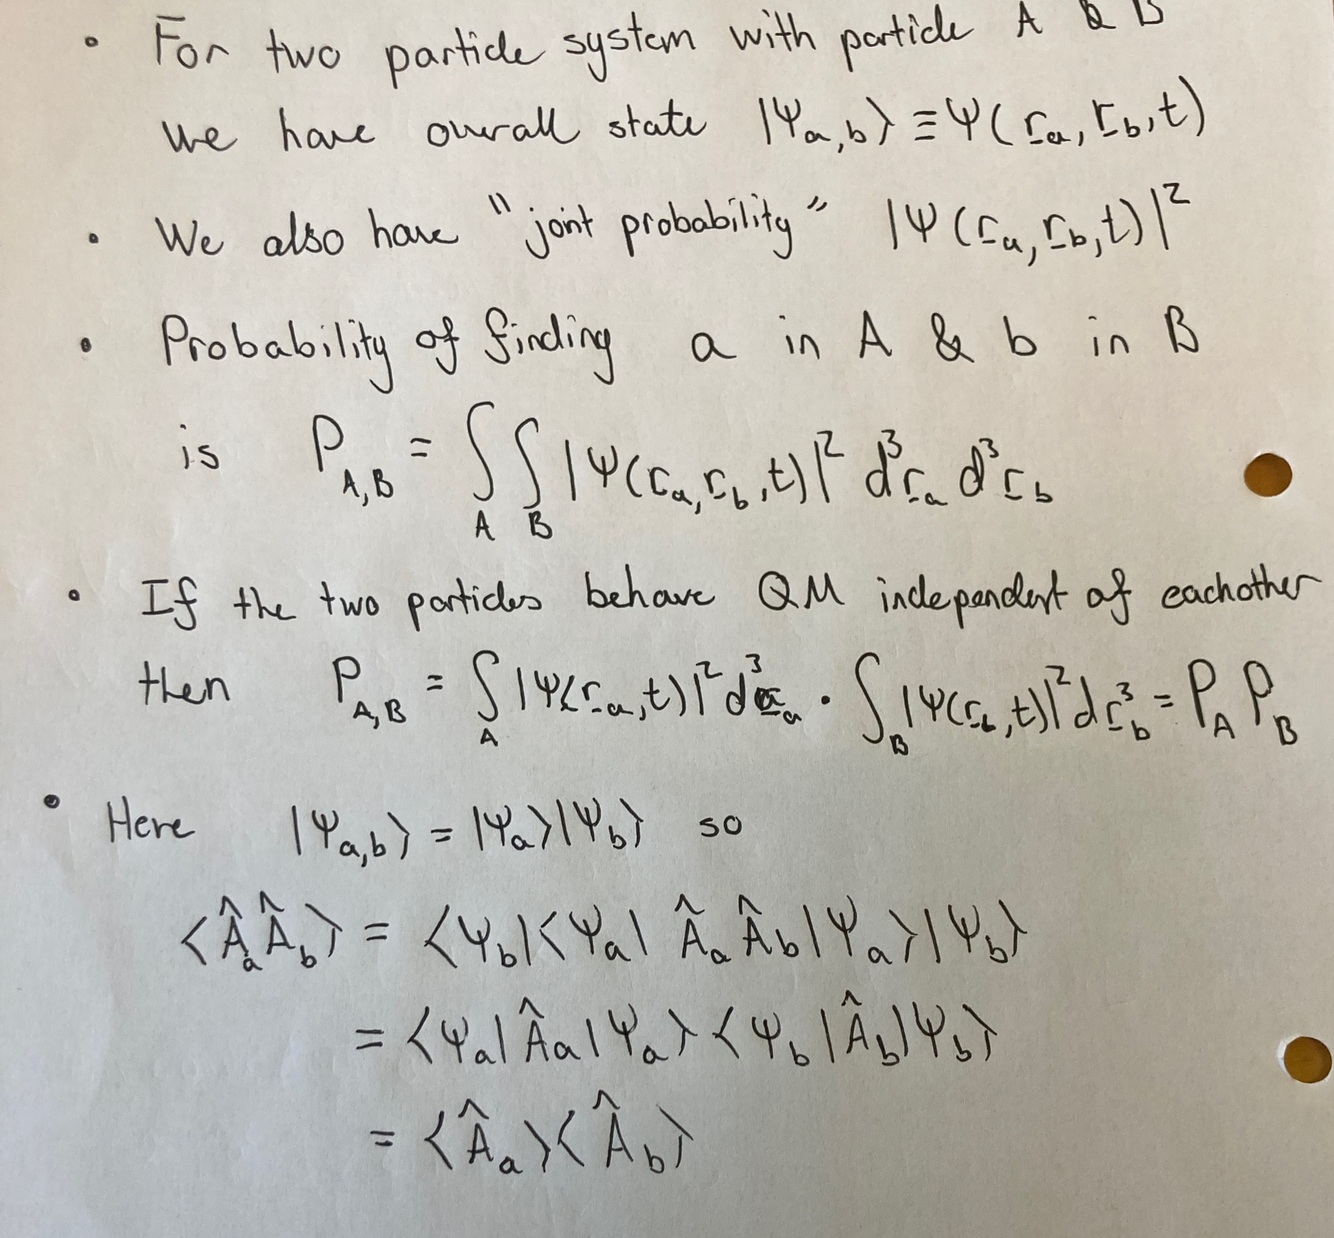 • For two particle system with particle A & B
we have overall state |Ψₐ,b⟩ ≡ Ψ(r̲ₐ, r̲_b, t)
• We also have "joint probability" |Ψ(r̲ₐ, r̲_b, t)|²
• Probability of finding a in A & b in B
is P_A,B = ∫_A ∫_B |Ψ(r̲ₐ, r̲_b, t)|² d³r̲ₐ d³r̲_b
• If the two particles behave QM independent of eachother
then P_A,B = ∫_A |Ψ(r̲ₐ, t)|² d³r̲ₐ · ∫_B |Ψ(r̲_b, t)|² dr̲³_b = P_A P_B
• Here |Ψₐ,b⟩ = |Ψₐ⟩|Ψ_b⟩ so
⟨Âₐ Â_b⟩ = ⟨Ψ_b|⟨Ψₐ| Âₐ Â_b |Ψₐ⟩|Ψ_b⟩
= ⟨Ψₐ|Âₐ|Ψₐ⟩⟨Ψ_b|Â_b|Ψ_b⟩
= ⟨Âₐ⟩⟨Â_b⟩